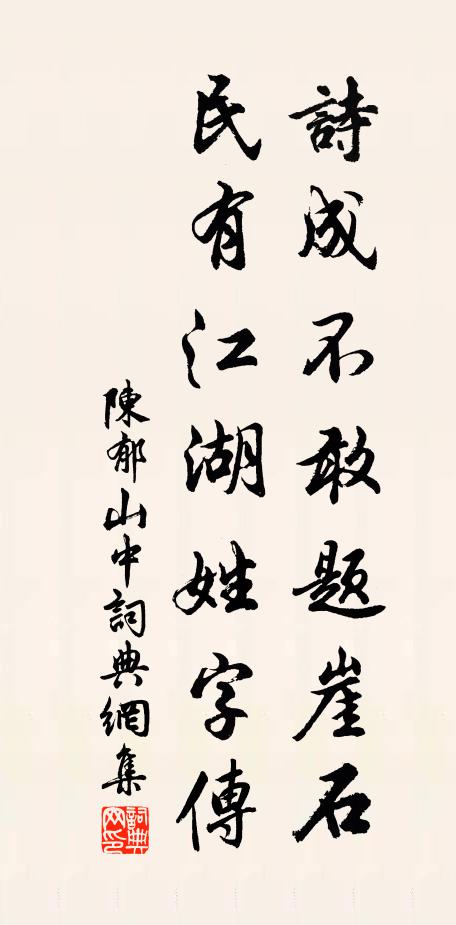 詩成不敢題崖石
民有江湖姓字傳
陳郁山中詞典網集
詞典網印